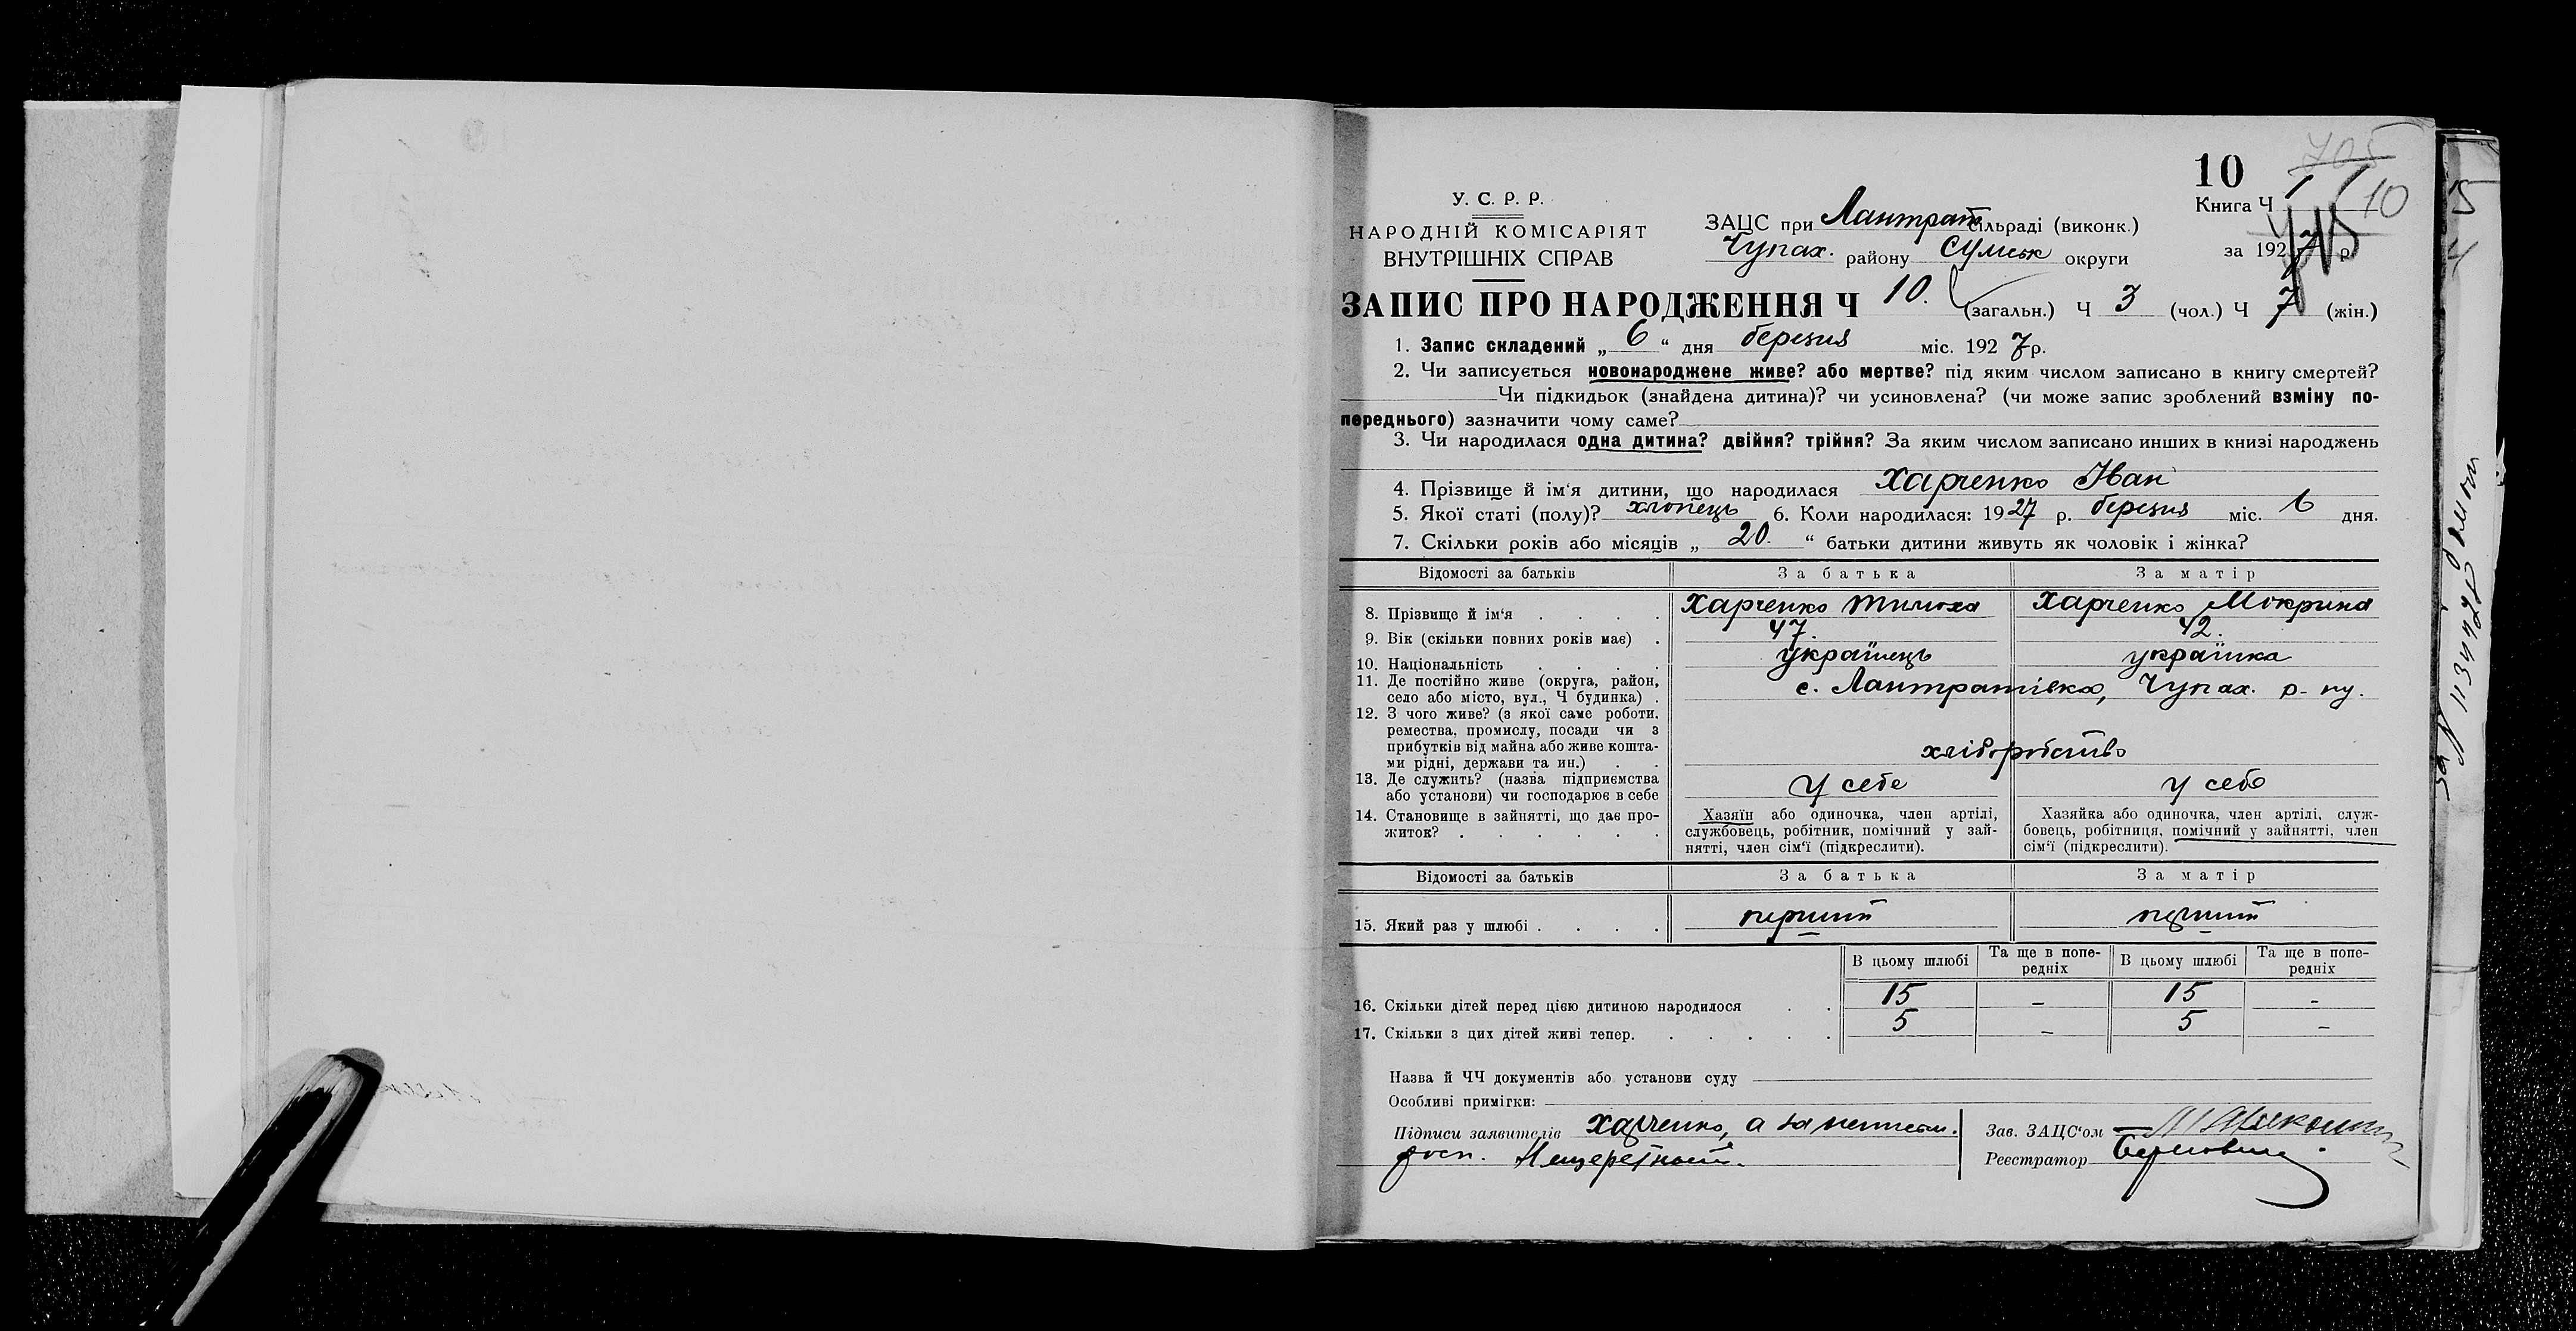 705
10
Книга Ч 1 10
за 1927 р
У. С. Р. Р.
НАРОДНІЙ КОМІСАРІЯТ
ВНУТРІШНІХ СПРАВ
ЗАЦС при Лантрат сільраді (виконк.)
Чупах. району Сумськ округи
ЗАПИС ПРО НАРОДЖЕННЯ Ч 10. (загальн.) Ч 3 (чол.) Ч 7 (жін.)
1. Запис складений „ 6 “ дня березня міс. 1927 р.
2. Чи записується новонароджене живе? або мертве? під яким числом записано в книгу смертей?
Чи підкидьок (знайдена дитина)? чи усиновлена? (чи може запис зроблений взміну по-
переднього) зазначити чому саме?
3. Чи народилася одна дитина? двійня? трійня? За яким числом записано инших в книзі народжень
4. Прізвище й ім‘я дитини, що народилася Харченко Іван
5. Якої статі (полу)? хлопець 6. Коли народилася: 1927 р. березня міс. 6 дня.
7. Скільки років або місяців „ 20. “ батьки дитини живуть як чоловік і жінка?
Відомості за батьків За батька За матір
8. Прізвище й ім‘я . . . . Харченко Тимоха Харченко Мокрина
9. Вік (скільки повних років має) . 47. 42.
10. Національність . . . . українець українка
11. Де постійно живе (округа, район,
село або місто, вул., Ч будинка) . с. Лантратівка, Чупах. р-ну.
12. З чого живе? (з якої саме роботи,
ремества, промислу, посади чи з
прибутків від майна або живе кошта-
ми рідні, держави та ин.) . . хліборобство
13. Де служить? (назва підприємства
або установи) чи господарює в себе У себе у себе
14. Становище в зайнятті, що дає про-
житок? . . . . . .
Хазяїн або одиночка, член артілі,
службовець, робітник, помічний у зай-
нятті, член сім‘ї (підкреслити).
Хазяйка або одиночка, член артілі, служ-
бовець, робітниця, помічний у зайнятті, член
сім‘ї (підкреслити).
Відомості за батьків За батька За матір
15. Який раз у шлюбі . . . . перший перший
В цьому шлюбі Та ще в попе- В цьому шлюбі Та ще в попе-
редніх редніх
16. Скільки дітей перед цією дитиною народилося . . 15 – 15 –
17. Скільки з цих дітей живі тепер. . . . . . 5 – 5 –
Назва й ЧЧ документів або установи суду
Особливі примітки:
Підписи заявителів Харченко, а за неписм.
росп.
Зав. ЗАЦС‘ом
Реєстратор